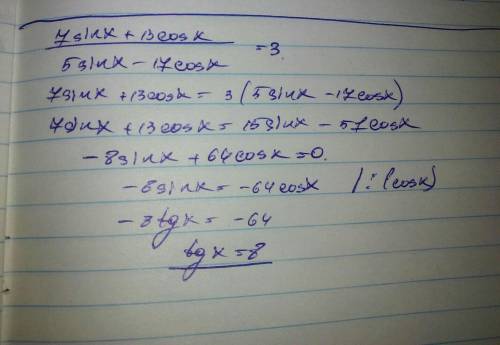 7sinx + 13cosx
5sinx - 17cosx
= 3
7sinx + 13cosx = 3(5sinx - 17cosx)
7sinx + 13cosx = 15sinx - 57cosx
-8sinx + 64cosx = 0.
-8sinx = -64cosx /: (cosx)
-8tgx = -64
tgx = 8